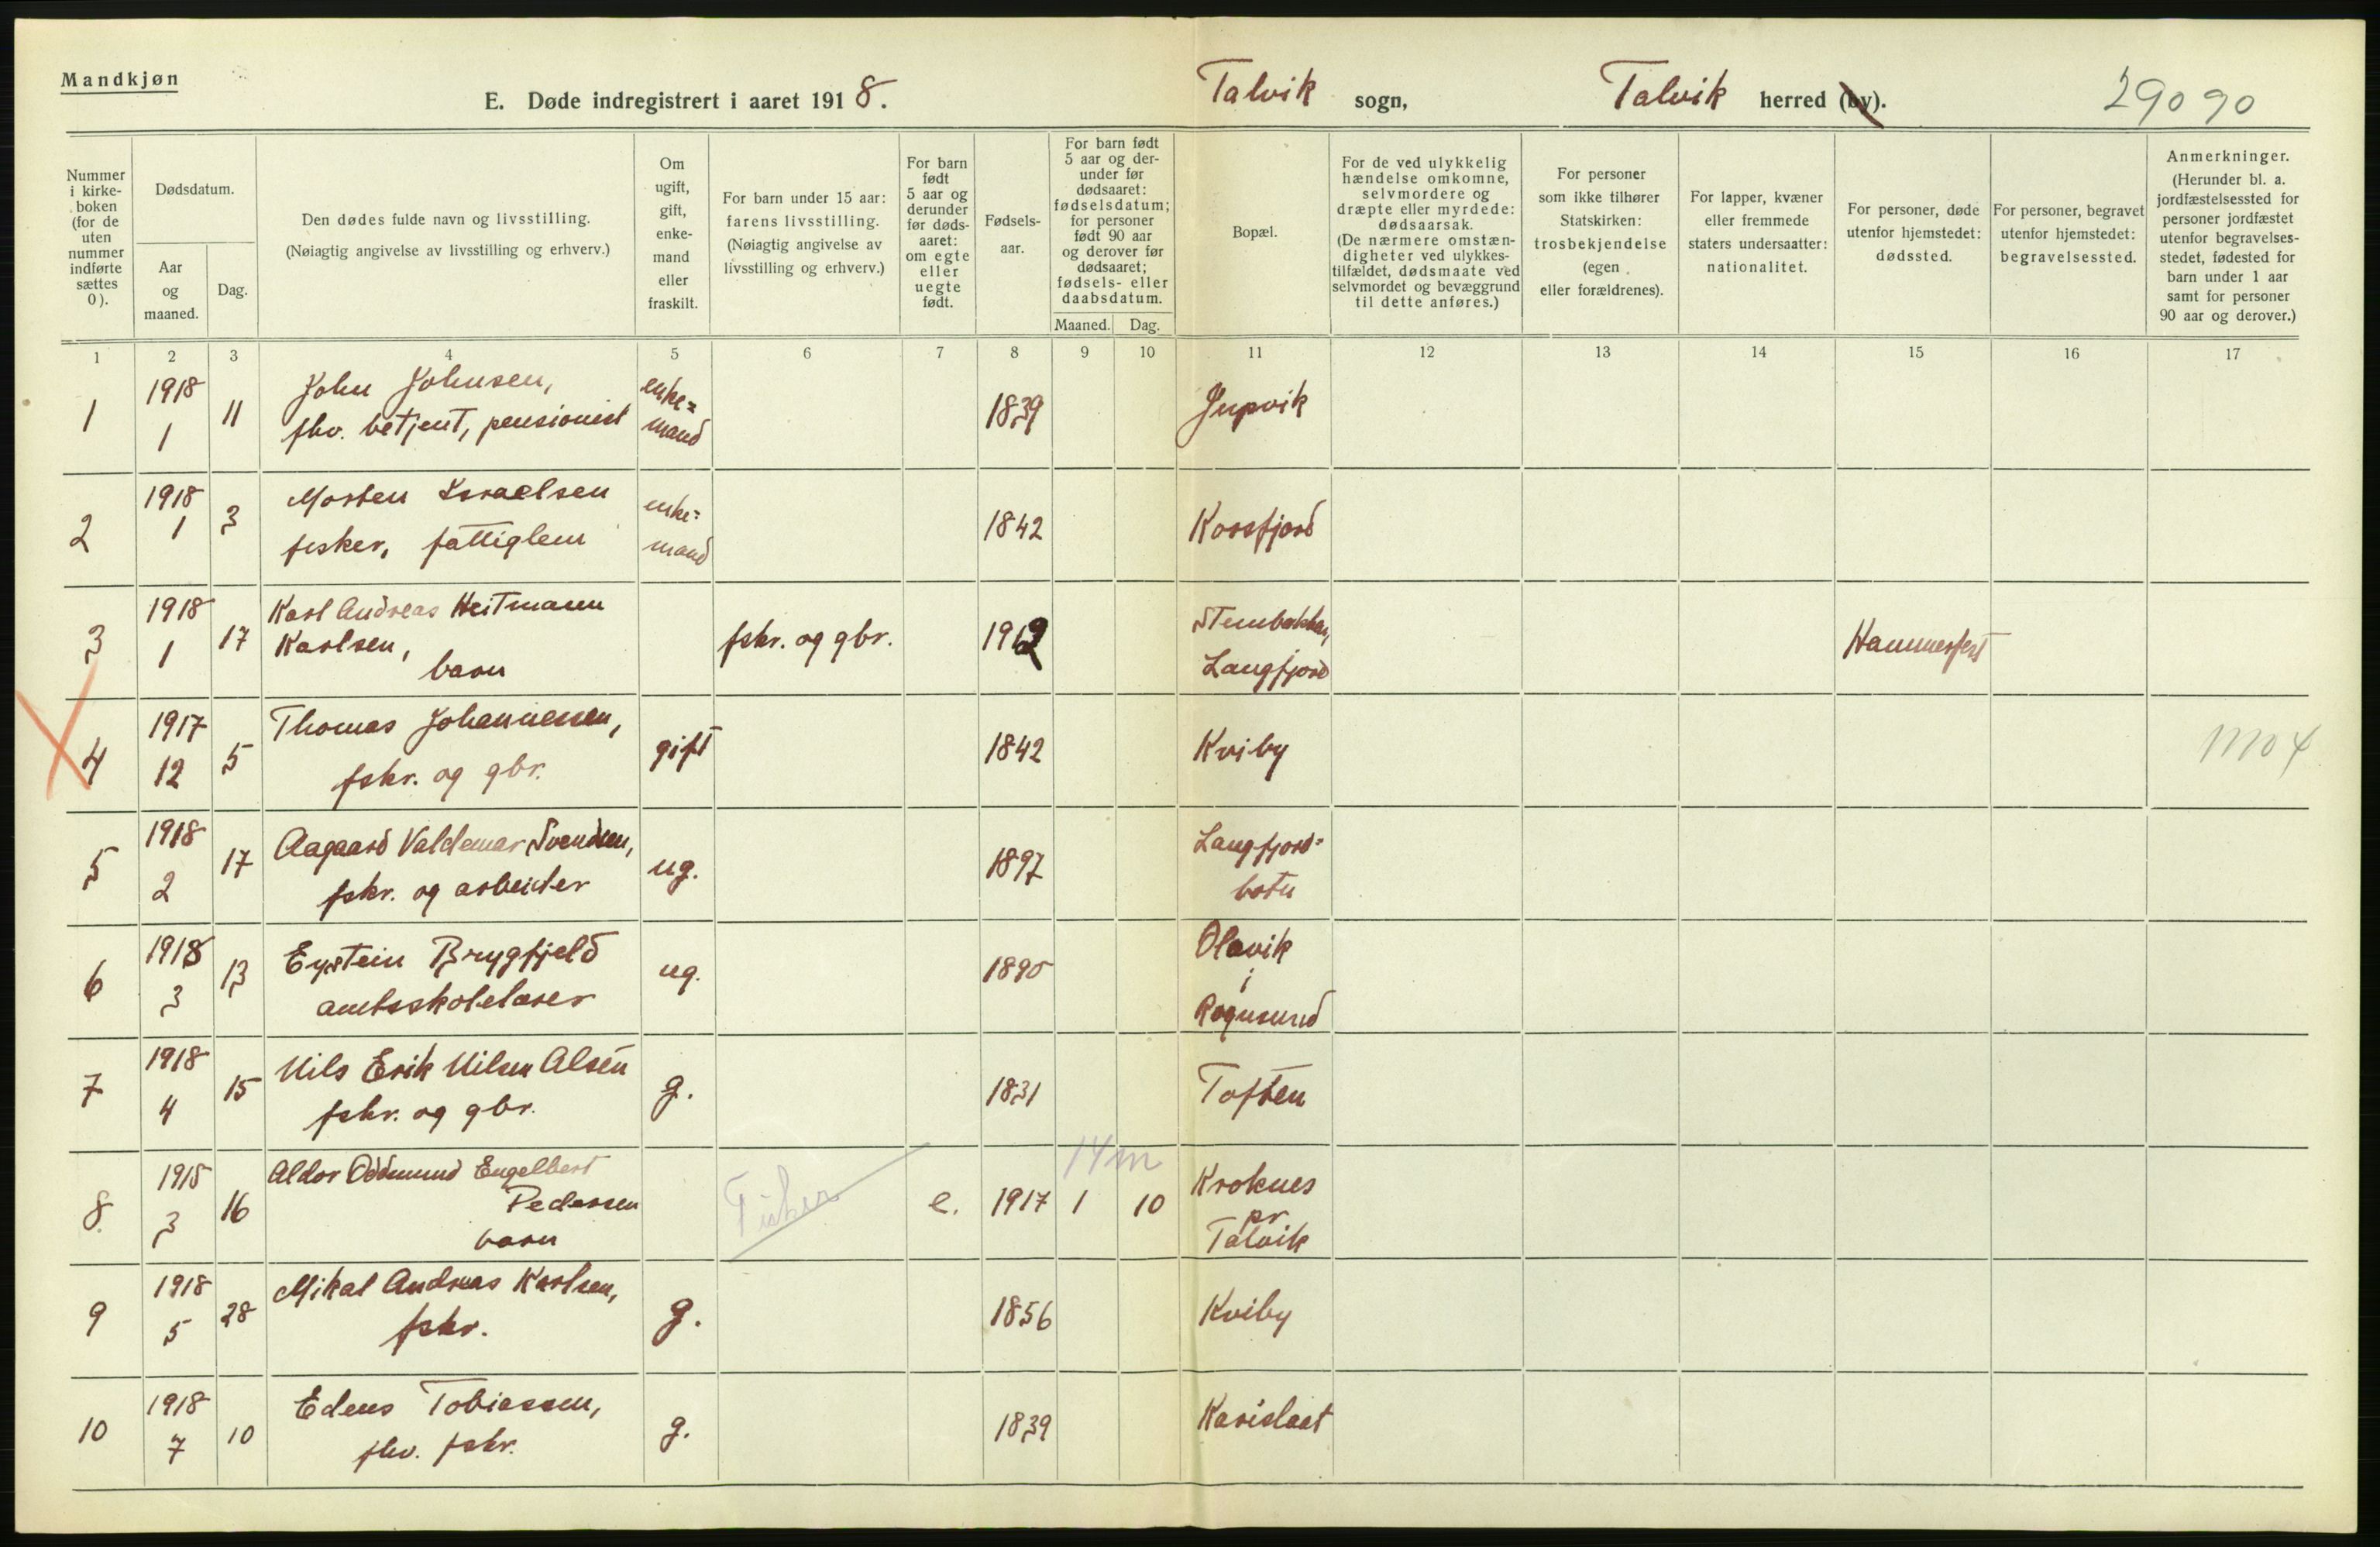 Mandkjøn
E. Døde indregistrert i aaret 1918.
Talvik sogn, Talvik herred (by).
29090
Nummer i kirke-boken (for de uten nummer indførte sættes 0).
Dødsdatum.
Aar og maaned.
Dag.
Den dødes fulde navn og livsstilling.
(Nøiagtig angivelse av livsstilling og erhverv.)
Om ugift, gift, enke-mand eller fraskilt.
For barn under 15 aar: farens livsstilling.
(Nøiagtig angivelse av livsstilling og erhverv.)
For barn født 5 aar og derunder før døds-aaret: om egte eller uegte født.
Fødsels-aar.
For barn født 5 aar og der-under før dødsaaret: fødselsdatum; for personer født 90 aar og derover før dødsaaret; fødsels- eller daabsdatum.
Maaned. Dag.
Bopæl.
For de ved ulykkelig hændelse omkomne, selvmordere og dræpte eller myrdede: dødsaarsak.
(De nærmere omstæn-digheter ved ulykkes-tilfældet, dødsmaate ved selvmordet og bevæggrund til dette anføres.)
For personer som ikke tilhører Statskirken: trosbekjendelse (egen eller forældrenes).
For lapper, kvæner eller fremmede staters undersaatter: nationalitet.
For personer, døde utenfor hjemstedet: dødssted.
For personer, begravet utenfor hjemstedet: begravelsessted.
Anmerkninger.
(Herunder bl. a. jordfæstelsessted for personer jordfæstet utenfor begravelses-stedet, fødested for barn under 1 aar samt for personer 90 aar og derover.)
1 2 3 4 5 6 7 8 9 10 11 12 13 14 15 16 17
1 1918 1 11 John Johnsen, fhv. betjent, pensionist enke=mand 1839
2 1918 1 3 Morten Israelsen fisker, fattiglem enke=mand 1842 Korsfjord
3 1918 1 17 Karl Andreas Heitmann Karlsen, barn fskr. og gbr. 1912 Langfjord Hammerfest
4 1917 12 5 Thomas Johannessen, fskr. og gbr. gift 1842 Kviby
5 1918 2 17 Aagaard Valdemar Svendsen, fskr. og arbeider ug. 1897 Langfjord=botn
6 1918 3 13 Eystein Brygfjeld amtsskolelærer ug. 1890 Olavik i Rognsund
7 1918 4 15 Nils Erik Nilsen Alsén fskr. og gbr. g. 1831 Toften
8. 1918 3 16 Aldor Oddmund Engelbert Pedersen barn Fisker e. 1917 14 m 1 10 Kroknes pr. Talvik
9 1918 5 28 Mikal Andreas Karlsen, fskr. g. 1856 Kviby
10 1918 7 10 Edens Tobiassen, fhv. fskr. g. 1839 Karislaat